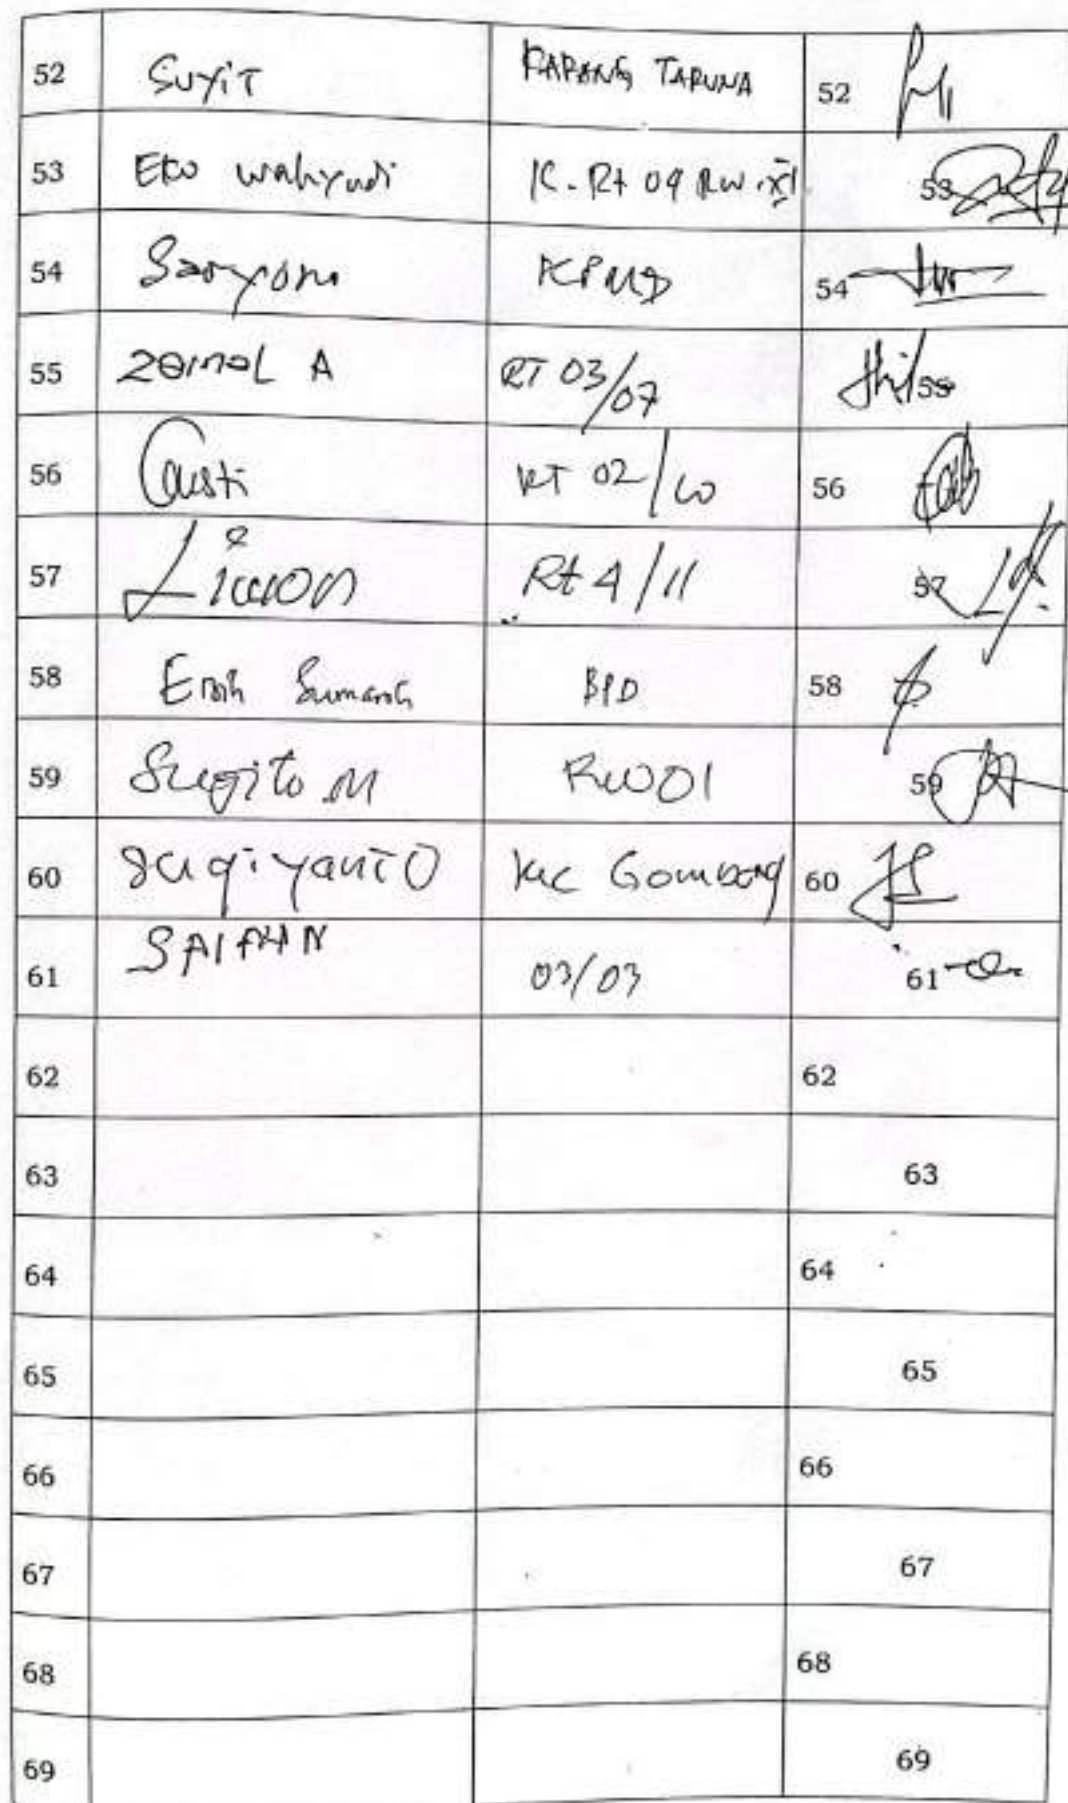 52 Suyit KARANG TARUNA 52
53 Eko Wahyudi K. Rt 04 RW. XI 53
54 Saryono KPMD 54
55 Zainal A RT 03/07 55
56 RT 02/10 56
57 Liwon Rt 4/11 57
58 BPD 58
59 Sugito M RW01 59
60 Sugiyanto Kec Gombong 60
61 03/03 61
62 62
63 63
64 64
65 65
66 66
67 67
68 68
69 69